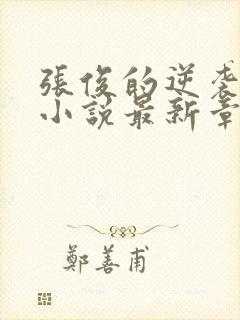 張俊的逆袭
小説最新章
鄭善甫